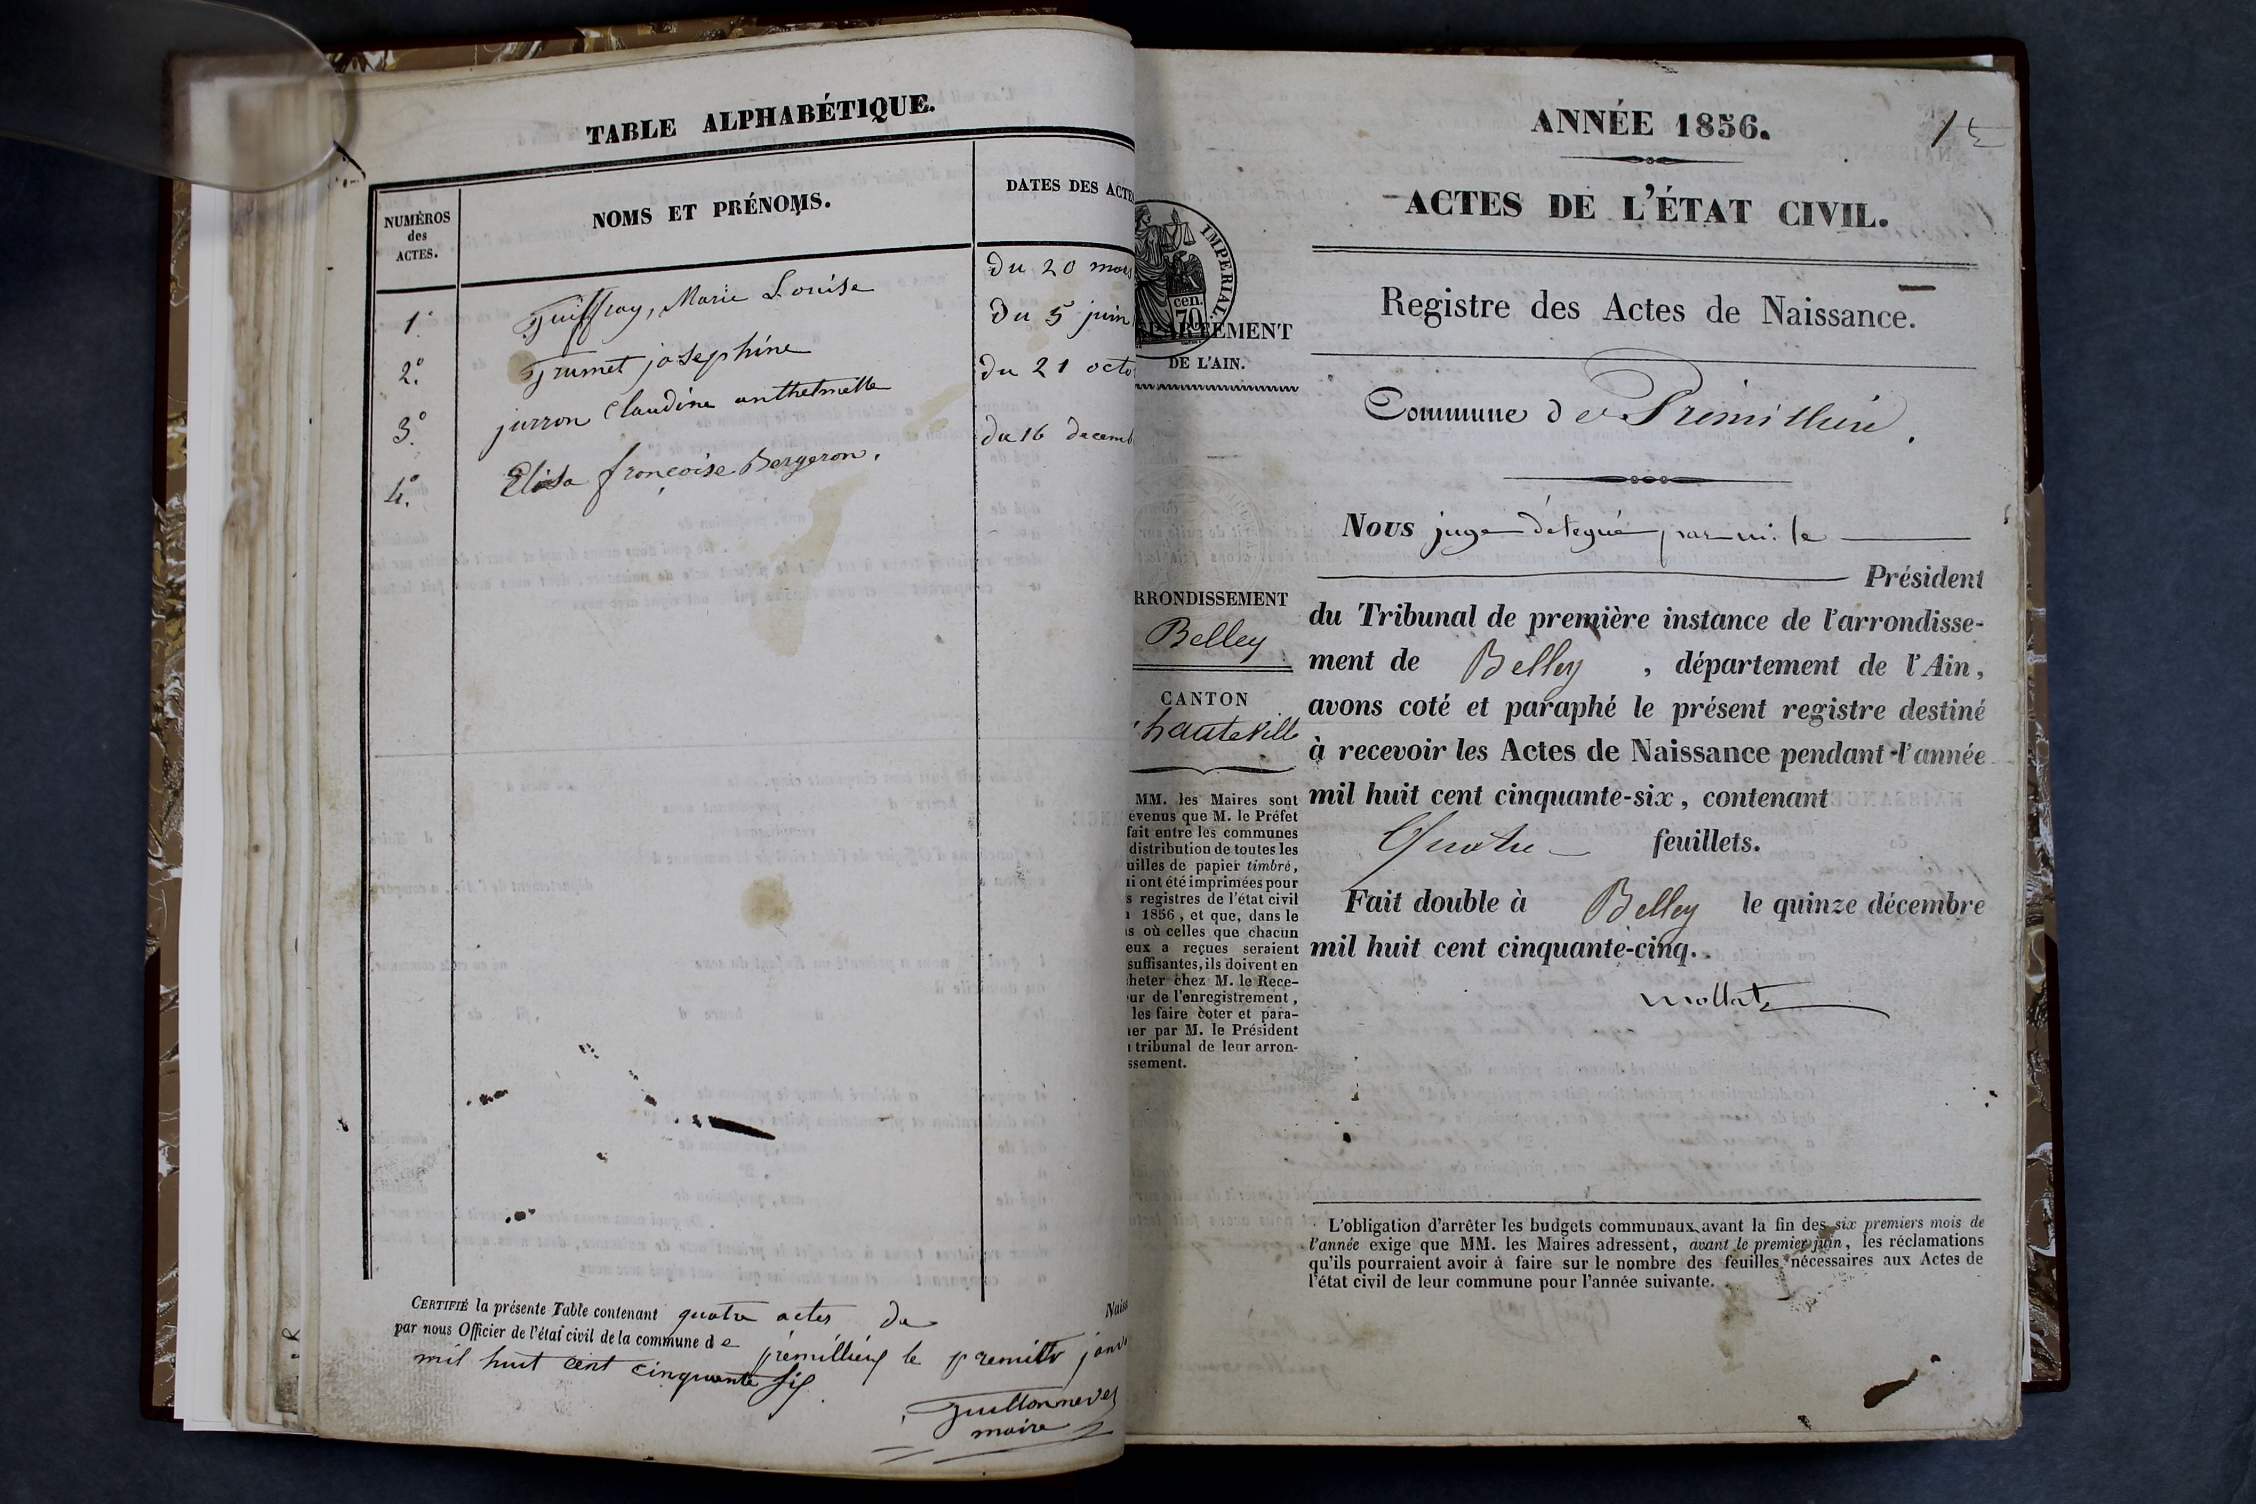 TABLE ALPHABÉTIQUE.
NUMÉROS
des
ACTES.
NOMS ET PRÉNOMS.
DATES DES ACTES
1°. Guiffray, Marie Louise
Du 20 mars
2°. Grumet josephine
Du 5 juin
3°. jurron Claudine anthelmette
du 21 octo
4°. Elisa françoise Bergeron.
du 16 decemb
CERTIFIÉ la présente Table contenant quatre actes de Naiss
par nous Officier de l'état civil de la commune de prémillieu le premier janv
mil huit cent cinquante six
maire
ANNÉE 1856.
ACTES DE L'ÉTAT CIVIL.
IMPERIAL.
cen.
70
DÉPARTEMENT
DE L'AIN.
Registre des Actes de Naissance.
Commune de Prémillieu.
RRONDISSEMENT
Belley
CANTON
hauteville
MM. les Maires sont
évenus que M. le Préfet
fait entre les communes
distribution de toutes les
uilles de papier timbré,
ui ont été imprimées pour
s registres de l'état civil
1856, et que, dans le
as où celles que chacun
eux a reçues seraient
suffisantes, ils doivent en
heter chez M. le Rece-
ur de l'enregistrement,
les faire coter et para-
her par M. le Président
u tribunal de leur arron-
ssement.
Nous juge délégué par m. le
Président
du Tribunal de première instance de l'arrondisse-
ment de Belley, département de l'Ain,
avons coté et paraphé le présent registre destiné
à recevoir les Actes de Naissance pendant l'année
mil huit cent cinquante-six, contenant
Quatre feuillets.
Fait double à Belley le quinze décembre
mil huit cent cinquante-cinq.
L'obligation d'arrêter les budgets communaux avant la fin des six premiers mois de
l'année exige que MM. les Maires adressent, avant le premier juin, les réclamations
qu'ils pourraient avoir à faire sur le nombre des feuilles nécessaires aux Actes de
l'état civil de leur commune pour l'année suivante.